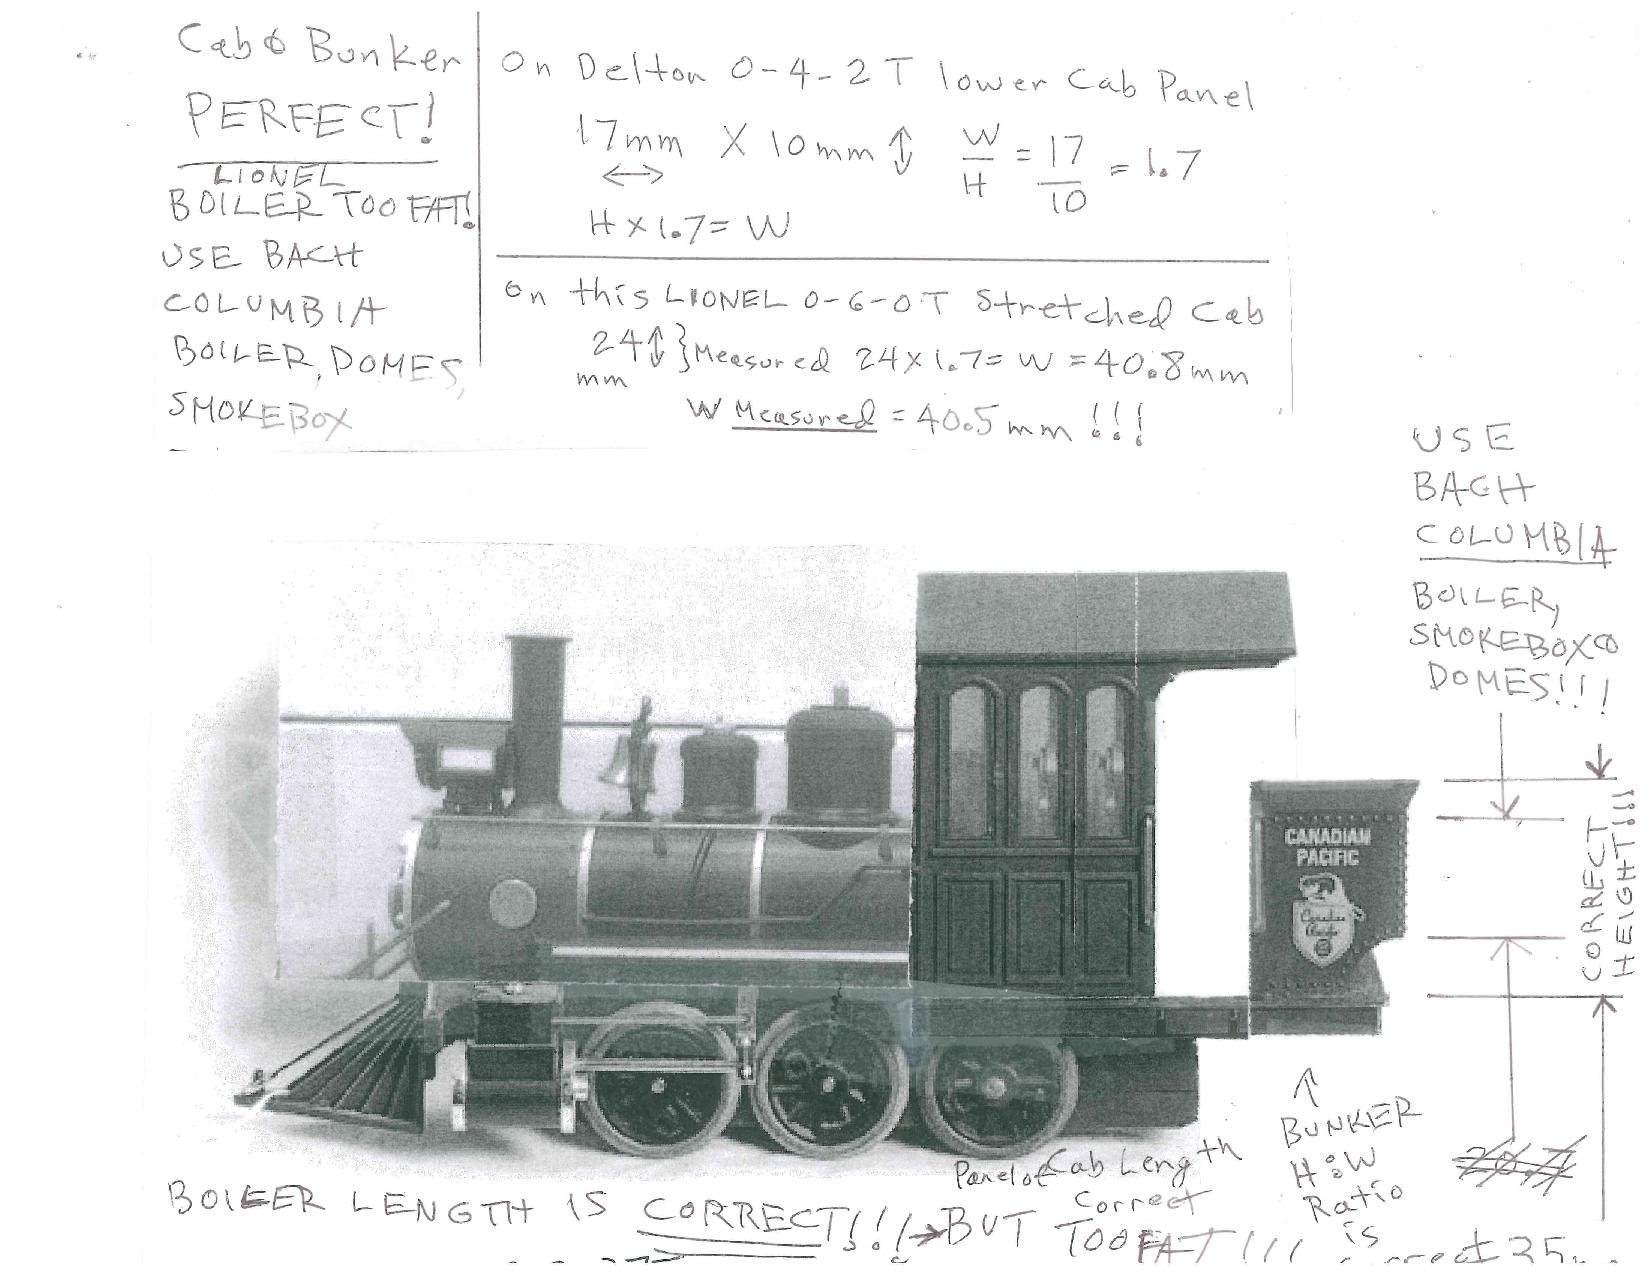 Cab & Bunker
PERFECT!
LIONEL
BOILER TOO FAT!
USE BACH
COLUMBIA
BOILER, DOMES,
SMOKEBOX
On Delton 0-4-2T lower Cab Panel
17mm X 10mm ↕ W/H = 17/10 = 1.7
↔
H × 1.7 = W
On this LIONEL 0-6-0T Stretched Cab
24↕ } Measured 24 × 1.7 = W = 40.8mm
mm
W Measured = 40.5mm !!!
USE
BACH
COLUMBIA
BOILER,
SMOKEBOX &
DOMES!!!
CORRECT
HEIGHT!!!!
CANADIAN
PACIFIC
Canadian
Pacific
BUNKER
H:W
Ratio
is
correct 35
Panel of Cab Length
Correct
BOILER LENGTH IS CORRECT!!! → BUT TOO FAT!!!